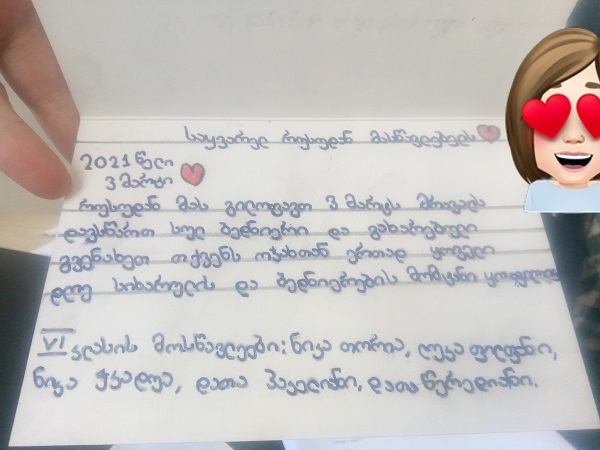 საყვარელ რუსუდან მასწავლებელს
2021 წელი
3 მარტი
რუსუდან მას გილოცავთ 3 მარტს მრავალს
დაესწარით სულ ბედნიერი და გახარებული
გვენახეთ თქვენს ოჯახთან ერთად ყოველი
დღე სიხარულის და ბედნიერების მომტანი ყოფილიყოს
VI კლასის მოსწავლეები: ნიკა თორია, ლუკა ფილფანი,
ნიკა ქვალდა, დათა ჰაკელიანი, დათა წერედიანი.